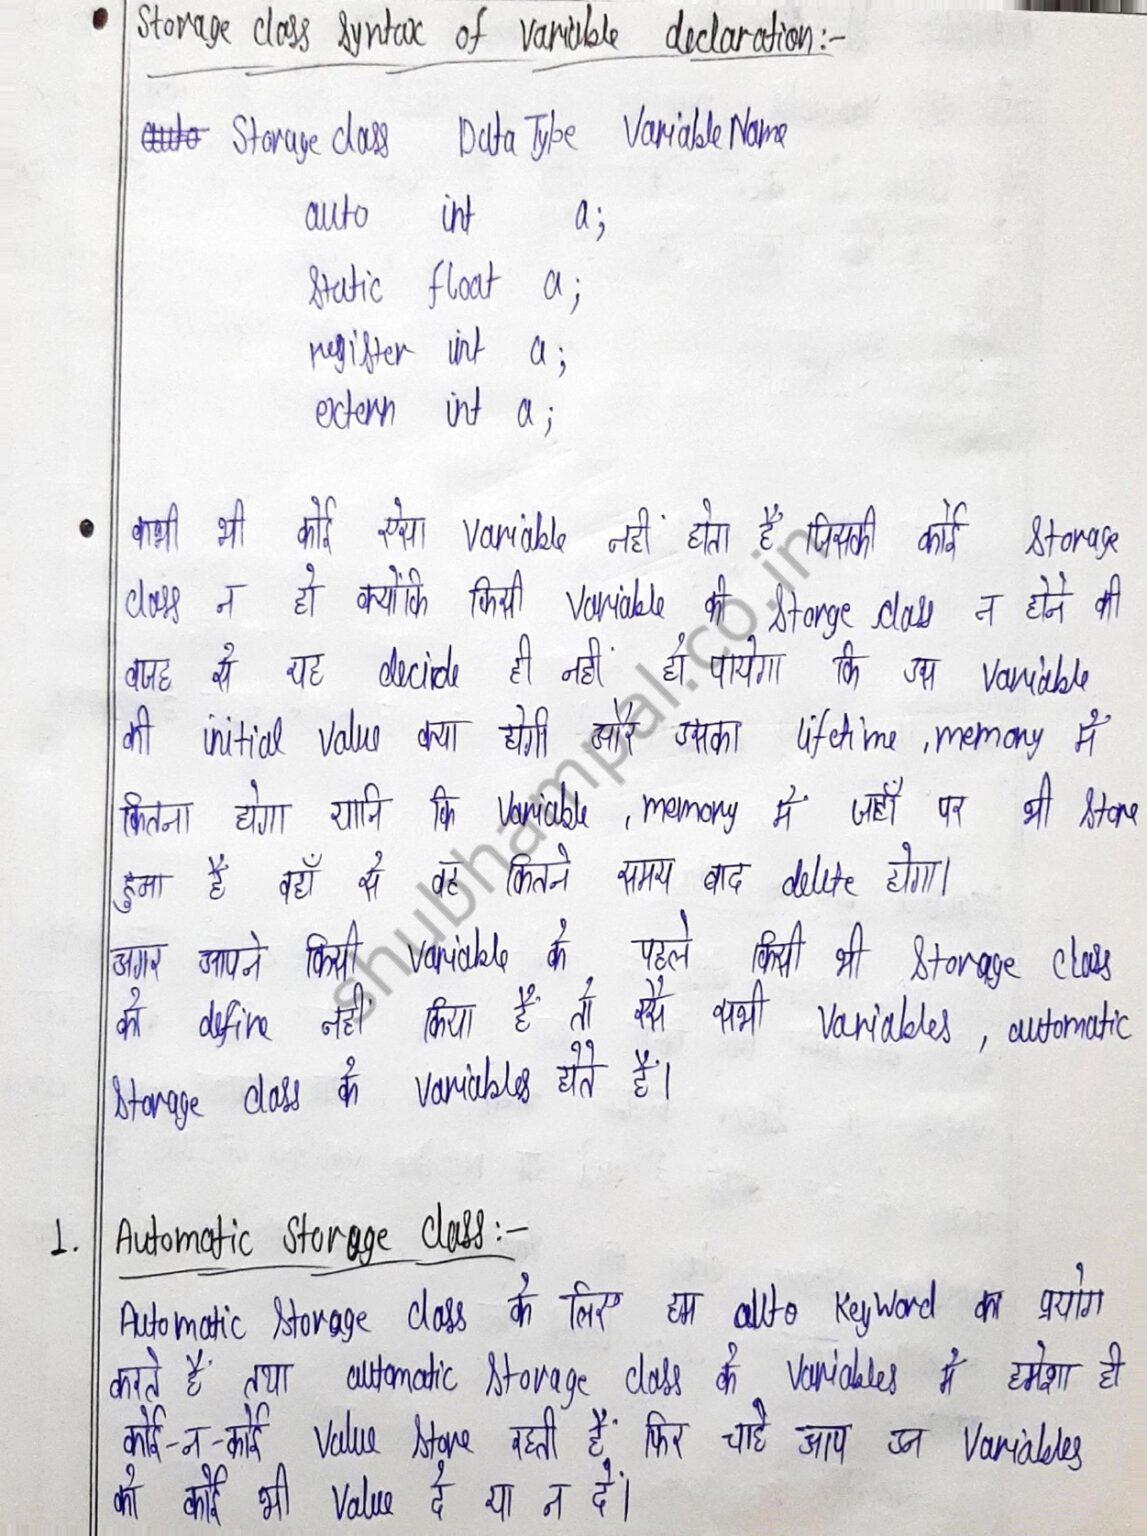 • Storage class syntax of variable declaration:-
auto Storage class Data Type Variable Name
auto int a;
Static float a;
register int a;
extern int a;
• कभी भी कोई ऐसा variable नहीं होता है जिसकी कोई Storage
class न हो क्योंकि किसी variable की Storge class न होने की
वजह से यह decide ही नहीं हो पायेगा कि उस variable
की initial value क्या होगी और उसका lifetime, memory में
कितना होगा यानि कि variable, memory में जहाँ पर भी Store
हुआ है वहाँ से वह कितने समय बाद delete होगा।
अगर आपने किसी variable के पहले किसी भी Storage class
को define नहीं किया है तो ऐसे सभी variables, automatic
Storage class के variables होते हैं।
1. Automatic Storage class:-
Automatic Storage class के लिए हम auto Keyword का प्रयोग
करते हैं तथा automatic Storage class के variables में हमेशा ही
कोई-न-कोई value Store रहती है फिर चाहे आप उन variables
को कोई भी value दें या न दें।
shubhampal.co.in